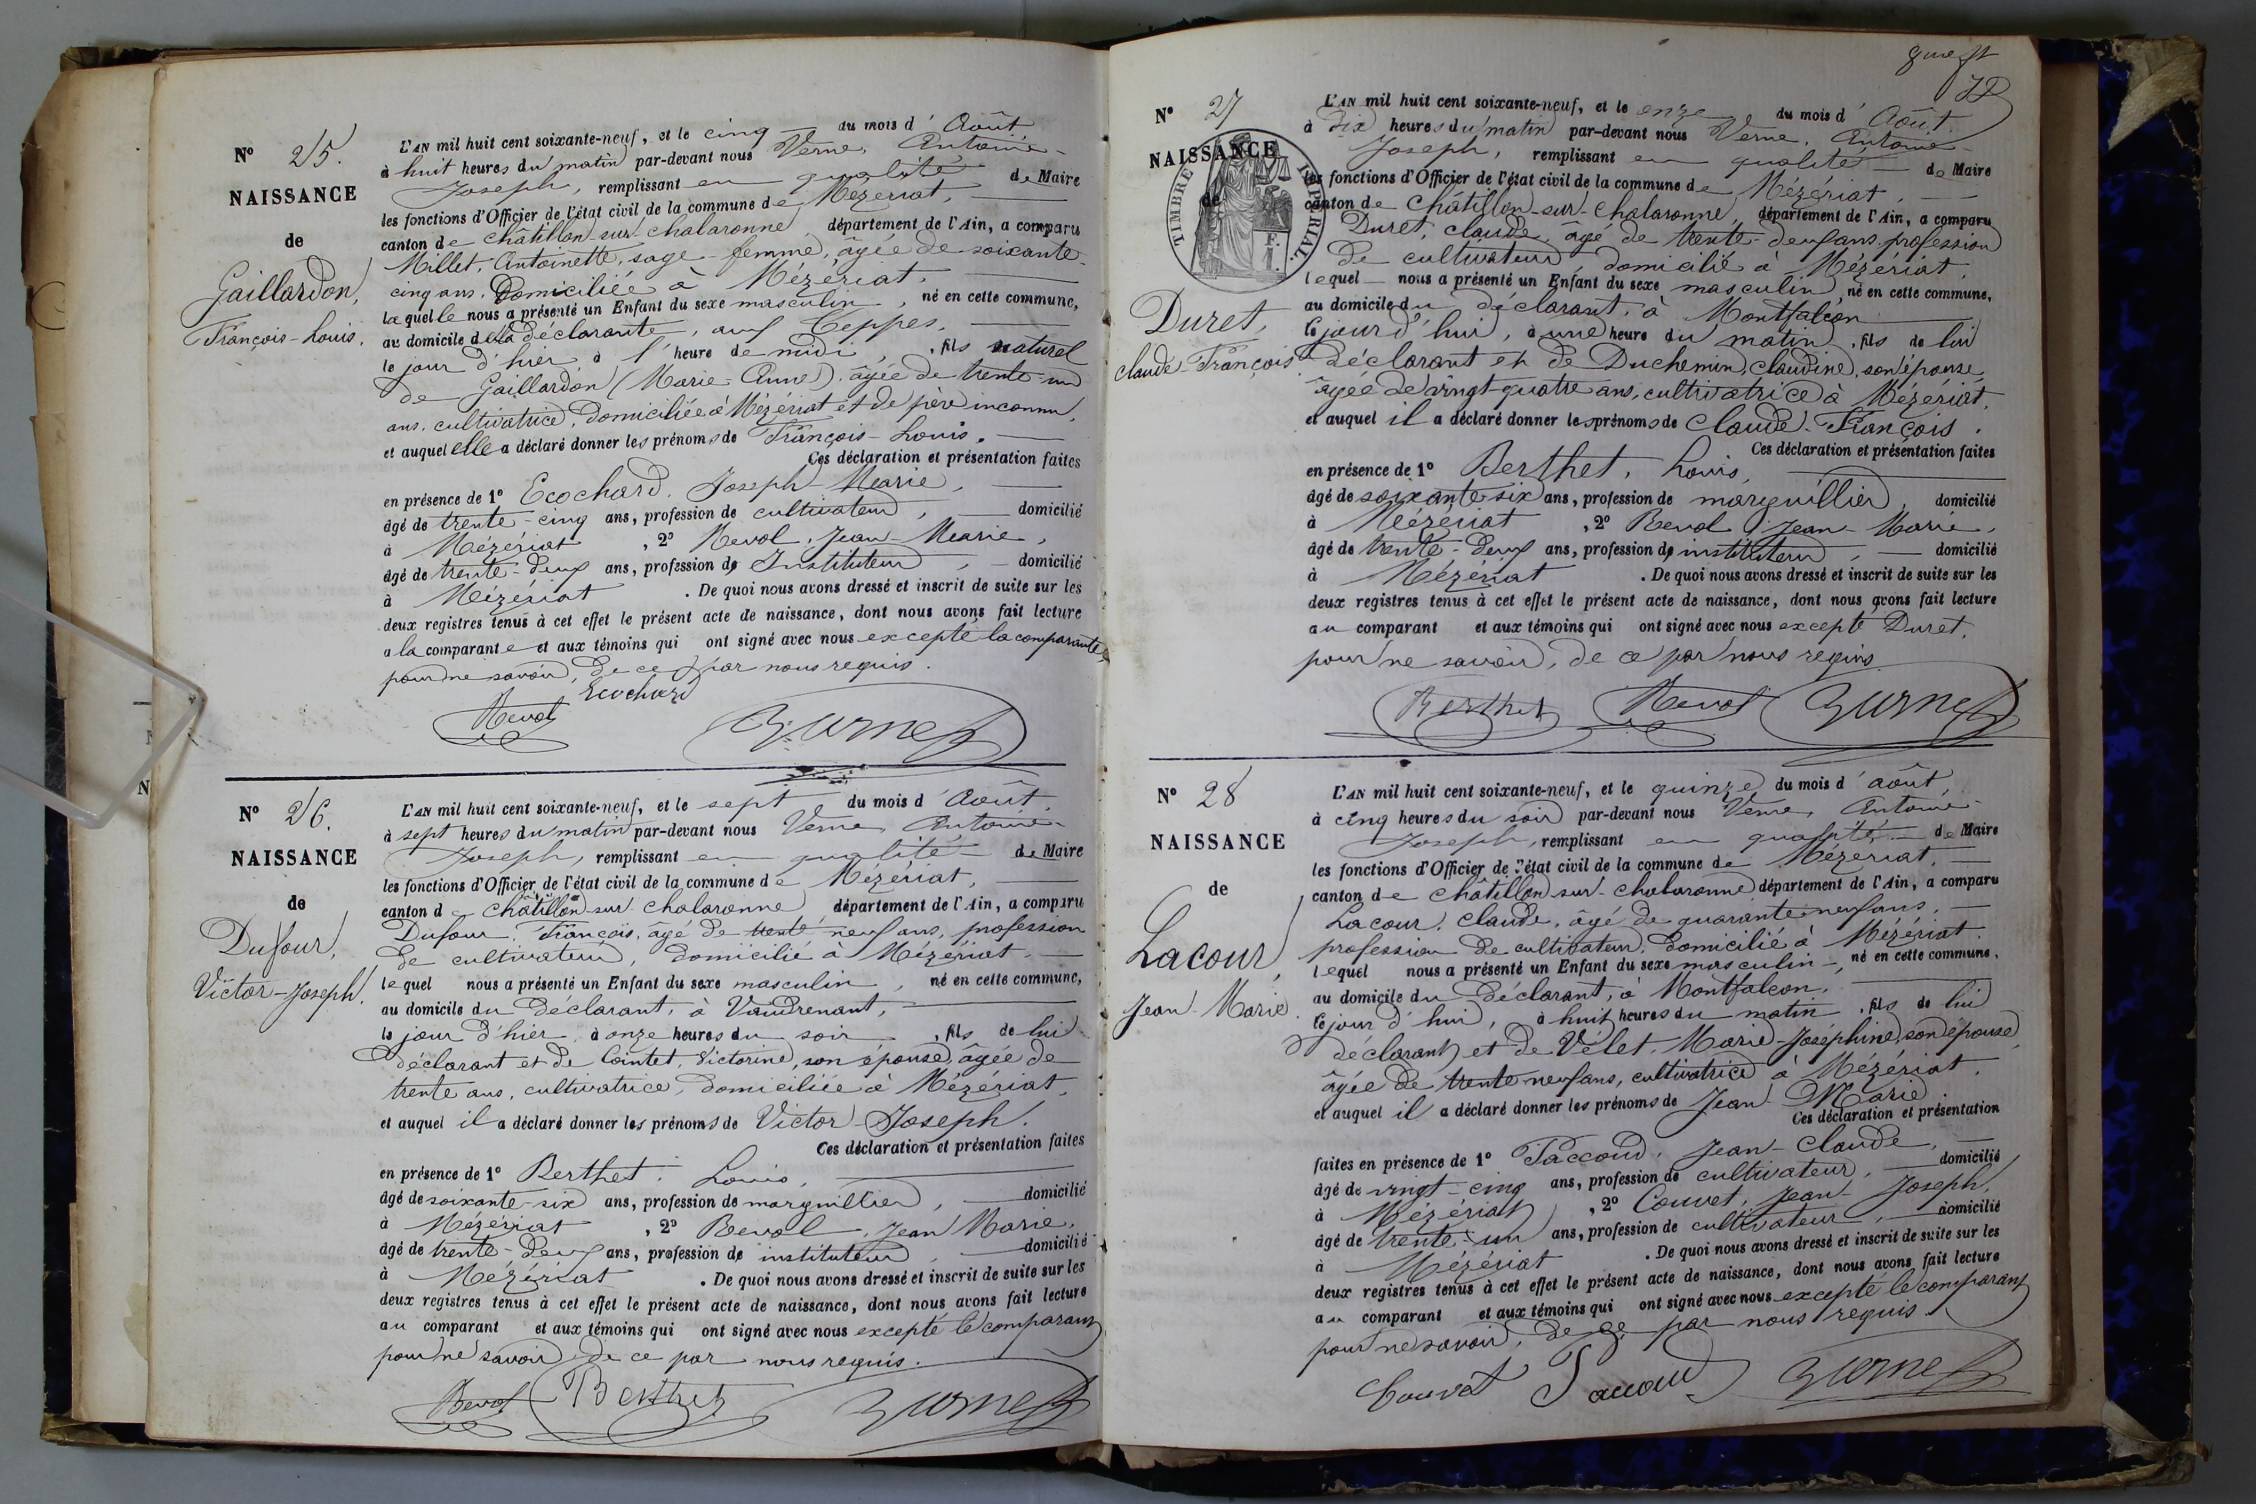 N° 25.
NAISSANCE
de
Gaillardon,
François-Louis.
L'AN mil huit cent soixante-neuf, et le cinq du mois d'Août
à huit heures du matin par-devant nous Verne, Antoine-
Joseph, remplissant en qualité de Maire
les fonctions d'Officier de l'état civil de la commune de Mézériat,
canton de Châtillon-sur-Chalaronne, département de l'Ain, a comparu
Millet, Antoinette, sage-femme, âgée de soixante-
cinq ans, Domiciliée à Mézériat,
laquelle nous a présenté un Enfant du sexe masculin, né en cette commune,
au domicile de la déclarante, aux Teppes,
le jour d'hier, à l'heure de midi, fils naturel
de Gaillardon (Marie Anne), âgée de trente-un
ans, cultivatrice, Domiciliée à Mézériat et de père inconnu,
et auquel elle a déclaré donner les prénoms de François-Louis.
Ces déclaration et présentation faites
en présence de 1° Ecochard, Joseph-Marie,
âgé de trente-cinq ans, profession de cultivateur, domicilié
à Mézériat, 2° Revol, Jean-Marie,
âgé de trente-deux ans, profession de Instituteur, domicilié
à Mézériat. De quoi nous avons dressé et inscrit de suite sur les
deux registres tenus à cet effet le présent acte de naissance, dont nous avons fait lecture
a la comparante et aux témoins qui ont signé avec nous excepté la comparante,
pour ne savoir, de ce par nous requis.
Ecochard
Revol
N° 26.
NAISSANCE
de
Dufour,
Victor-Joseph.
L'AN mil huit cent soixante-neuf, et le sept du mois d'Août,
à sept heures du matin par-devant nous Verne, Antoine-
Joseph, remplissant en qualité de Maire
les fonctions d'Officier de l'état civil de la commune de Mézériat,
canton de Châtillon-sur-Chalaronne, département de l'Ain, a comparu
Dufour, François, âgé de trente neuf ans, profession
de cultivateur, domicilié à Mézériat,
lequel nous a présenté un Enfant du sexe masculin, né en cette commune,
au domicile du déclarant, à Vaudrenant,
le jour d'hier, à onze heures du soir, fils de lui
déclarant et de Cointet, Victorine, son épouse, âgée de
trente ans, cultivatrice, domiciliée à Mézériat,
et auquel il a déclaré donner les prénoms de Victor-Joseph.
Ces déclaration et présentation faites
en présence de 1° Berthet, Louis,
âgé de soixante-six ans, profession de marguillier, domicilié
à Mézériat, 2° Revol, Jean Marie,
âgé de trente-deux ans, profession de instituteur, domicilié
à Mézériat. De quoi nous avons dressé et inscrit de suite sur les
deux registres tenus à cet effet le présent acte de naissance, dont nous avons fait lecture
au comparant et aux témoins qui ont signé avec nous excepté le comparant
pour ne savoir, de ce par nous requis.
Revol Berthet
N° 27
NAISSANCE
de
TIMBRE IMPÉRIAL
Duret,
Claude-François.
L'AN mil huit cent soixante-neuf, et le onze du mois d'Août,
à dix heures du matin par-devant nous Verne, Antoine-
Joseph, remplissant en qualité de Maire
les fonctions d'Officier de l'état civil de la commune de Mézériat,
canton de Châtillon-sur-Chalaronne, département de l'Ain, a comparu
Duret, Claude, âgé de trente-deux ans, profession
de cultivateur domicilié à Mézériat,
lequel nous a présenté un Enfant du sexe masculin, né en cette commune,
au domicile du déclarant, à Montfalcon
le jour d'hui, à une heure du matin, fils de lui
déclarant et de Duchemin, Claudine, son épouse
âgée de vingt quatre ans, cultivatrice à Mézériat,
et auquel il a déclaré donner les prénoms de Claude-François.
Ces déclaration et présentation faites
en présence de 1° Berthet, Louis,
âgé de soixante six ans, profession de marguillier, domicilié
à Mézériat, 2° Revol, Jean-Marie,
âgé de trente-deux ans, profession de instituteur, domicilié
à Mézériat. De quoi nous avons dressé et inscrit de suite sur les
deux registres tenus à cet effet le présent acte de naissance, dont nous avons fait lecture
au comparant et aux témoins qui ont signé avec nous excepté Duret,
pour ne savoir, de ce par nous requis.
Berthet Revol
N° 28
NAISSANCE
de
Lacour,
Jean-Marie.
L'AN mil huit cent soixante-neuf, et le quinze du mois d'août,
à cinq heures du soir par-devant nous Verne, Antoine-
Joseph, remplissant en qualité de Maire
les fonctions d'Officier de l'état civil de la commune de Mézériat,
canton de Châtillon-sur-Chalaronne département de l'Ain, a comparu
Lacour, Claude, âgé de quarante-neuf ans,
profession de cultivateur, domicilié à Mézériat,
lequel nous a présenté un Enfant du sexe masculin, né en cette commune,
au domicile du déclarant, à Montfalcon,
le jour d'hui, à huit heures du matin, fils de lui
déclarant et de Velet, Marie-Joséphine, son épouse,
âgée de trente neuf ans, cultivatrice à Mézériat,
et auquel il a déclaré donner les prénoms de Jean Marie
Ces déclaration et présentation
faites en présence de 1° Paccoud, Jean-Claude,
âgé de vingt-cinq ans, profession de cultivateur, domicilié
à Mézériat, 2° Couvet, Jean-Joseph,
âgé de trente-un ans, profession de cultivateur, domicilié
à Mézériat. De quoi nous avons dressé et inscrit de suite sur les
deux registres tenus à cet effet le présent acte de naissance, dont nous avons fait lecture
au comparant et aux témoins qui ont signé avec nous excepté le comparant
pour ne savoir, de ce par nous requis
Couvet Paccoud